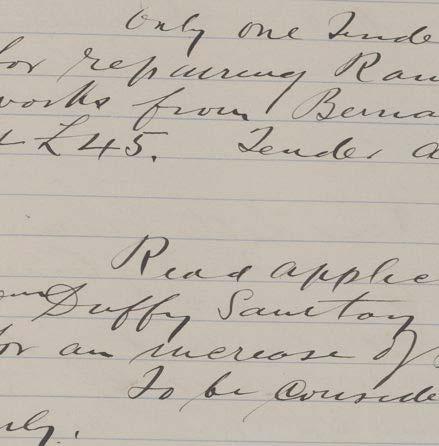 Only one Tende
for repairing Ran
works from Berna
£45. Tender a
Read applic
Duffy Sanitay
for an increase of
To be conside